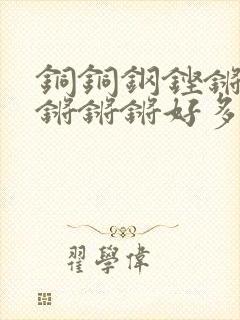 銅銅鋼鏗鏘
鏘鏘鏘好多
翟學偉